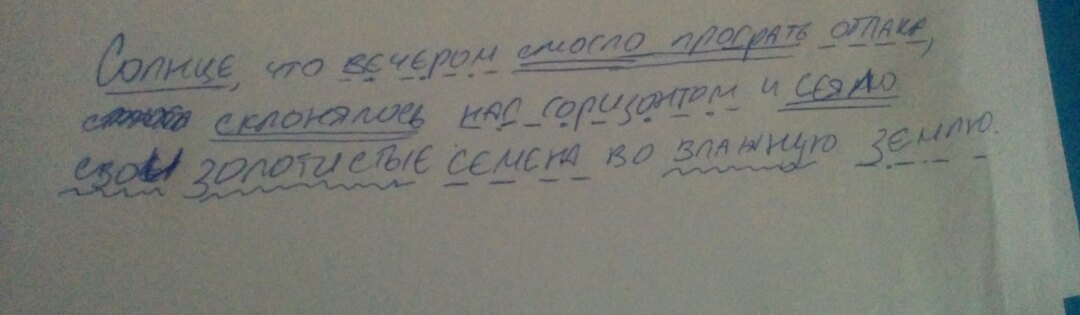 Солнце, что вечером смогло програть отлака,
склонялось над горизонтом и сеяло
свои золотистые семена во влажную землю.